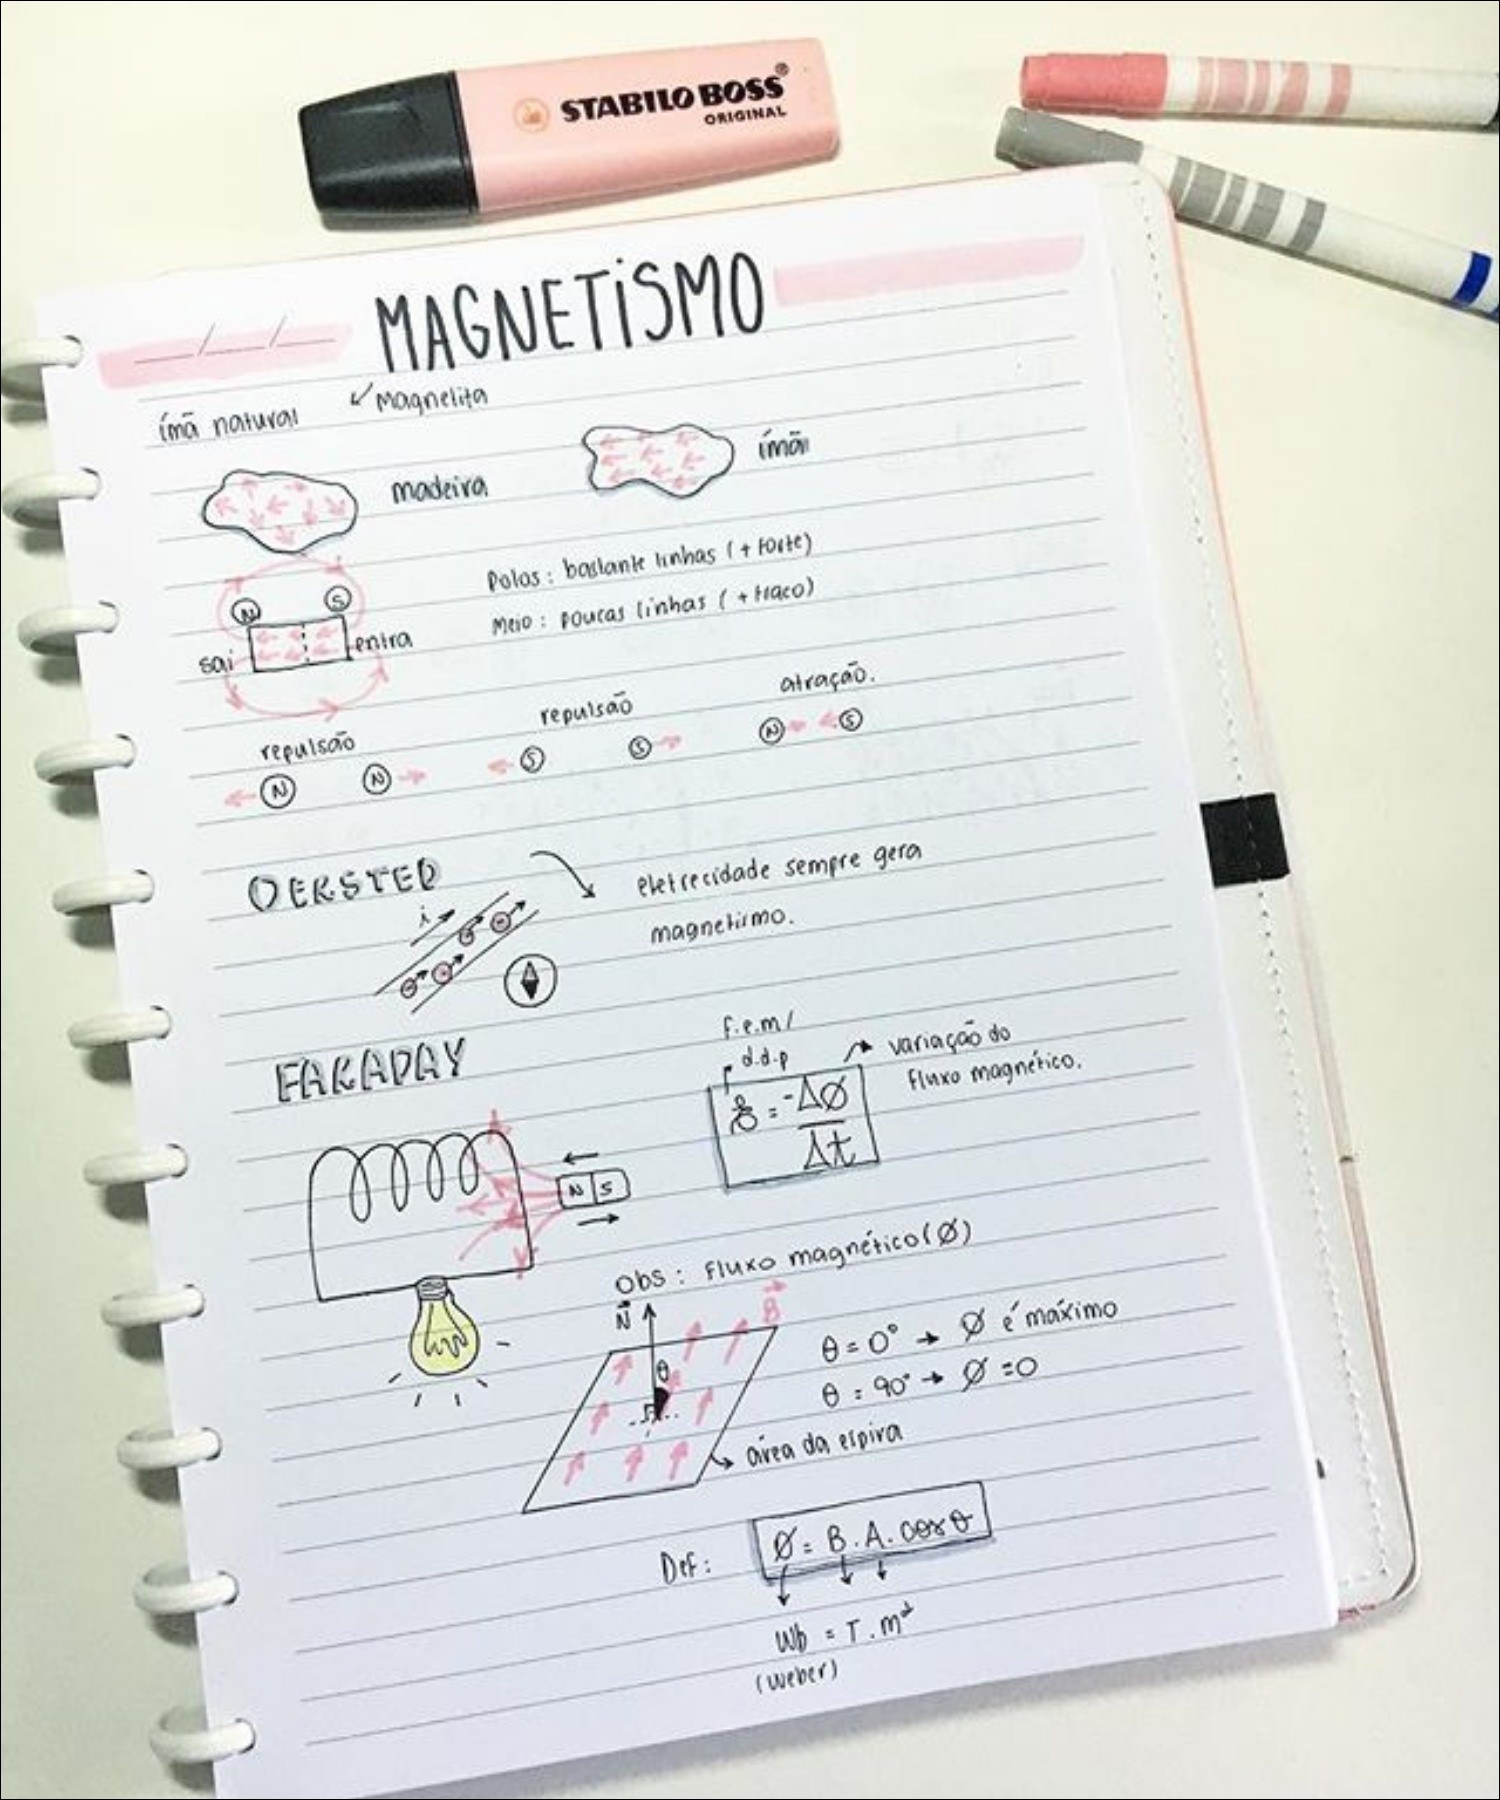 STABILO BOSS®
ORIGINAL
__/__/__ MAGNETiSMO
ímã natural ↙ Magnelita
madeira ímã
Polos: bastante linhas (+ forte)
Meio: poucas linhas (+ fraco)
N S
sai entra
repulsão repulsão atração.
N N S S N S
OERSTED
eletrecidade sempre gera
magnetismo.
i
FARADAY
f.e.m/
d.d.p
variação do
fluxo magnético.
ε = -ΔØ
Δt
N S
Obs: Fluxo magnético (Ø)
N⃗ B⃗
θ
θ = 0° → Ø é máximo
θ = 90° → Ø = 0
área da espira
Def: Ø = B . A . cos θ
Wb = T . m²
(weber)